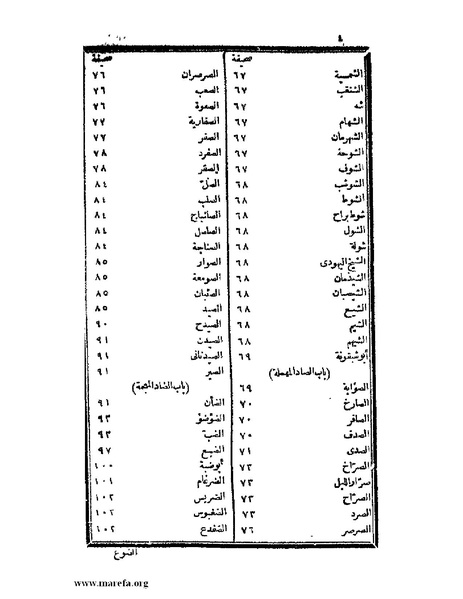 ٤
صحيفة
الشمسية ٦٧
الشنقب ٦٧
شه ٦٧
الشهام ٦٧
الشهرمان ٦٧
الشوحة ٦٧
الشوف ٦٧
الشوشب ٦٨
الشوط ٦٨
شوط براح ٦٨
الشول ٦٨
شولة ٦٨
الشيخ اليهودى ٦٨
الشيذمان ٦٨
الشيصبان ٦٨
الشيع ٦٨
الشيم ٦٨
الشيهم ٦٨
أبو شبقونة ٦٩
(باب الصاد المهملة)
الصؤابة ٦٩
الصارخ ٧٠
الصافر ٧٠
الصدف ٧٠
الصدى ٧١
الصراخ ٧٣
صرار الليل ٧٣
الصراح ٧٣
الصرد ٧٣
الصرصر ٧٦
صحيفة
الصرصران ٧٦
الصعب ٧٦
الصعوة ٧٦
الصفارية ٧٧
الصفر ٧٧
الصفرد ٧٨
الصقر ٧٨
الصل ٨٤
الصلب ٨٤
الصلنباج ٨٤
الصلصل ٨٤
الصناجة ٨٤
الصوار ٨٥
الصومعة ٨٥
الصئبان ٨٥
الصيد ٨٥
الصيدح ٩٠
الصيدن ٩١
الصيدنانى ٩١
الصير ٩١
(باب الضاد المعجمة)
الضأن ٩١
الضؤضؤ ٩٣
الضب ٩٣
الضبع ٩٧
أبو ضبة ١٠٠
الضرغام ١٠١
الضريس ١٠٢
الضغبوس ١٠٢
الضفدع ١٠٢
الضوع
www.marefa.org